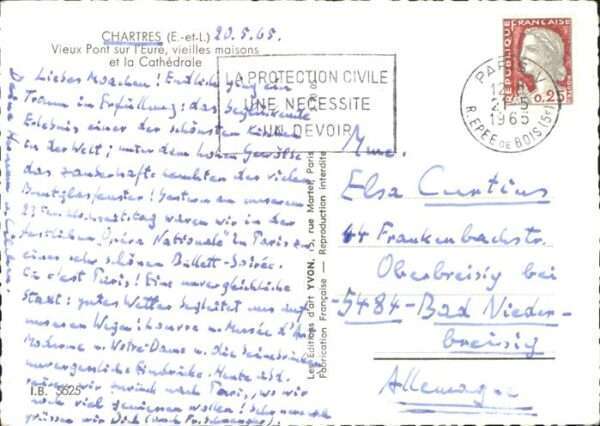 CHARTRES (E.-et-L.) 20.5.65.
Vieux Pont sur l'Eure, vieilles maisons
et la Cathédrale
Liebes ! Endlich ging ein
Traum in Erfüllung: das beglückende
Erlebnis einer der schönsten Kirchen
in der Welt; unter dem hohen Gewölbe
das zauberhafte Leuchten der vielen
Buntglasfenster! Gestern an unserem
waren wir in der
festlichen "Opéra Nationale" in Paris zu
einer sehr schönen Ballett-Soirée.
Ca c'est Paris! Eine unvergleichliche
Stadt: gutes Wetter begleitet uns auf
unseren Wegen! Louvre u. Musée d'Art
Moderne u. Notre-Dame u. die
unvergessliche Eindrücke. Heute Abd.
wir zurück nach Paris, wo wir
noch viel genießen wollen!
grüssen wir Dich
I.B. 5525
Les Editions d'art YVON, 15, rue Martel, Paris
Fabrication Française - Reproduction interdite
LA PROTECTION CIVILE
UNE NECESSITE
UN DEVOIR
PARIS V
12
1965
R. EPEE DE BOIS (5e)
REPUBLIQUE FRANÇAISE
0,25
Mme.
Elsa Curtius
44 Frankenbachstr.
Oberbreisig bei
5484-Bad Nieder-
breisig
Allemagne